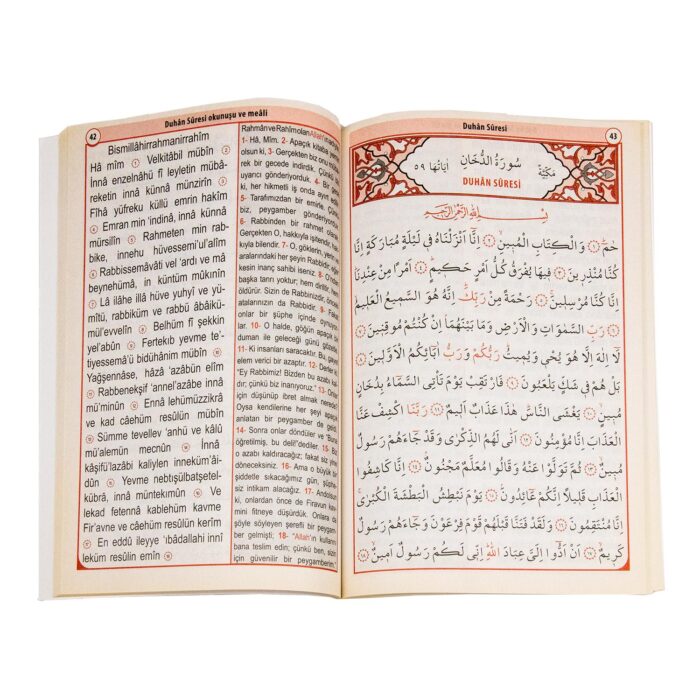 42
Duhân Sûresi okunuşu ve meâli
Bismillâhirrahmanirrahîm
Hâ mîm ① Velkitâbil mübîn ②
İnnâ enzelnâhü fî leyletin mübâ-
reketin innâ künnâ münzirîn ③
Fîhâ yüfreku küllü emrin hakîm
④ Emran min ‘indinâ, innâ künnâ
mürsilîn ⑤ Rahmeten min rab-
bike, innehu hüvessemi'ul'alîm
⑥ Rabbissemâvâti vel ‘ardı ve mâ
beynehümâ, in küntüm mûkınîn
⑦ Lâ ilâhe illâ hüve yuhyî ve yü-
mîtü, rabbüküm ve rabbü âbâikü-
mül'evvelîn ⑧ Belhüm fî şekkin
yel'abûn ⑨ Fertekıb yevme te’-
tiyessemâ'ü bidühânim mübîn ⑩
Yağşennâse, hâzâ ‘azâbün elîm
⑪ Rabbenekşif ‘annel'azâbe innâ
mü'minûn ⑫ Ennâ lehümüzzikrâ
ve kad câehüm resûlün mübîn
⑬ Sümme tevellev ‘anhü ve kâlû
mü'alemün mecnûn ⑭ İnnâ
kâşifü'lazâbi kaliylen inneküm'âi-
dûn ⑮ Yevme nebtışülbatşetel-
kübrâ, innâ müntekımûn ⑯ Ve
lekad fetennâ kablehüm kavme
Fir'avne ve câehüm resûlün kerîm
⑰ En eddû ileyye ‘ıbâdallahi innî
leküm resûlün emîn ⑱
Rahmân ve Rahîm olan Allah'ın
1- Hâ, Mîm. 2- Apaçık kitaba
olsun ki, 3- Gerçekten biz onu mü
rek bir gecede indirdik. Çünkü
uyarıcı gönderiyorduk. 4- Bir
ki, her hikmetli iş onda ayırt edi
5- Tarafımızdan bir emirle. Çünkü
biz, peygamber gönderiyorduk.
6- Rabbinden bir rahmet olarak.
Gerçekten O, hakkıyla işitendir, hak
kıyla bilendir. 7- O, göklerin, yerin
aralarındaki her şeyin Rabbidir. Eğer
kesin inanç sahibi iseniz. 8- O'ndan
başka tanrı yoktur; hem diriltir, hem
öldürür. Sizin de Rabbinizdir, önceki
atalarınızın da Rabbidir. 9- Fakat
onlar bir şüphe içinde oynuyor-
lar. 10- O halde, göğün apaçık bir
duman ile geleceği günü gözetle.
11- Ki insanları saracaktır. Bu,
elem verici bir azaptır. 12- Derler ki,
“Ey Rabbimiz! Bizden bu azabı kal-
dır; çünkü biz inanıyoruz.” 13- Onlar
için düşünüp ibret almak nerede
Oysa kendilerine her şeyi apaçık
anlatan bir peygamber gelmişti.
14- Sonra ondan döndüler ve “Bu
öğretilmiş, bu deli!” dediler. 15- Biz
o azabı kaldıracağız; fakat siz yine
döneceksiniz. 16- Ama o büyük bir
şiddetle sıkacağımız gün, şüphe-
siz intikam alacağız. 17- Andolsun
ki, onlardan önce de Firavun kav-
mini fitneye düşürdük. Onlara da
şöyle söyleyen şerefli bir peygam-
ber gelmişti; 18- “Allah'ın kullarını
bana teslim edin; çünkü ben, sizin
için güvenilir bir peygamberim.”
Duhân Sûresi
43
مَكِّيَّةٌ سُورَةُ الدُّخَانِ اٰيَاتُهَا ٥٩
DUHÂN SÛRESİ
بِسْمِ اللّٰهِ الرَّحْمٰنِ الرَّحِيمِ
حٰمٓ ﴿١﴾ وَالْكِتَابِ الْمُبِينِ ﴿٢﴾ اِنَّٓا اَنْزَلْنَاهُ فِي لَيْلَةٍ مُبَارَكَةٍ اِنَّا
كُنَّا مُنْذِرِينَ ﴿٣﴾ فِيهَا يُفْرَقُ كُلُّ اَمْرٍ حَكِيمٍ ﴿٤﴾ اَمْرًا مِنْ عِنْدِنَا
اِنَّا كُنَّا مُرْسِلِينَ ﴿٥﴾ رَحْمَةً مِنْ رَبِّكَ اِنَّهُ هُوَ السَّمِيعُ الْعَلِيمُ
﴿٦﴾ رَبِّ السَّمٰوَاتِ وَالْاَرْضِ وَمَا بَيْنَهُمَا اِنْ كُنْتُمْ مُوقِنِينَ ﴿٧﴾
لَٓا اِلٰهَ اِلَّا هُوَ يُحْيِي وَيُمِيتُ رَبُّكُمْ وَرَبُّ اٰبَٓائِكُمُ الْاَوَّلِينَ ﴿٨﴾
بَلْ هُمْ فِي شَكٍّ يَلْعَبُونَ ﴿٩﴾ فَارْتَقِبْ يَوْمَ تَأْتِي السَّمَٓاءُ بِدُخَانٍ
مُبِينٍ ﴿١٠﴾ يَغْشَى النَّاسَ هٰذَا عَذَابٌ اَلِيمٌ ﴿١١﴾ رَبَّنَا اكْشِفْ عَنَّا
الْعَذَابَ اِنَّا مُؤْمِنُونَ ﴿١٢﴾ اَنّٰى لَهُمُ الذِّكْرٰى وَقَدْ جَٓاءَهُمْ رَسُولٌ
مُبِينٌ ﴿١٣﴾ ثُمَّ تَوَلَّوْا عَنْهُ وَقَالُوا مُعَلَّمٌ مَجْنُونٌ ﴿١٤﴾ اِنَّا كَاشِفُوا
الْعَذَابِ قَلِيلًا اِنَّكُمْ عَٓائِدُونَ ﴿١٥﴾ يَوْمَ نَبْطِشُ الْبَطْشَةَ الْكُبْرٰى
اِنَّا مُنْتَقِمُونَ ﴿١٦﴾ وَلَقَدْ فَتَنَّا قَبْلَهُمْ قَوْمَ فِرْعَوْنَ وَجَٓاءَهُمْ رَسُولٌ
كَرِيمٌ ﴿١٧﴾ اَنْ اَدُّٓوا اِلَيَّ عِبَادَ اللّٰهِ اِنِّي لَكُمْ رَسُولٌ اَمِينٌ ﴿١٨﴾